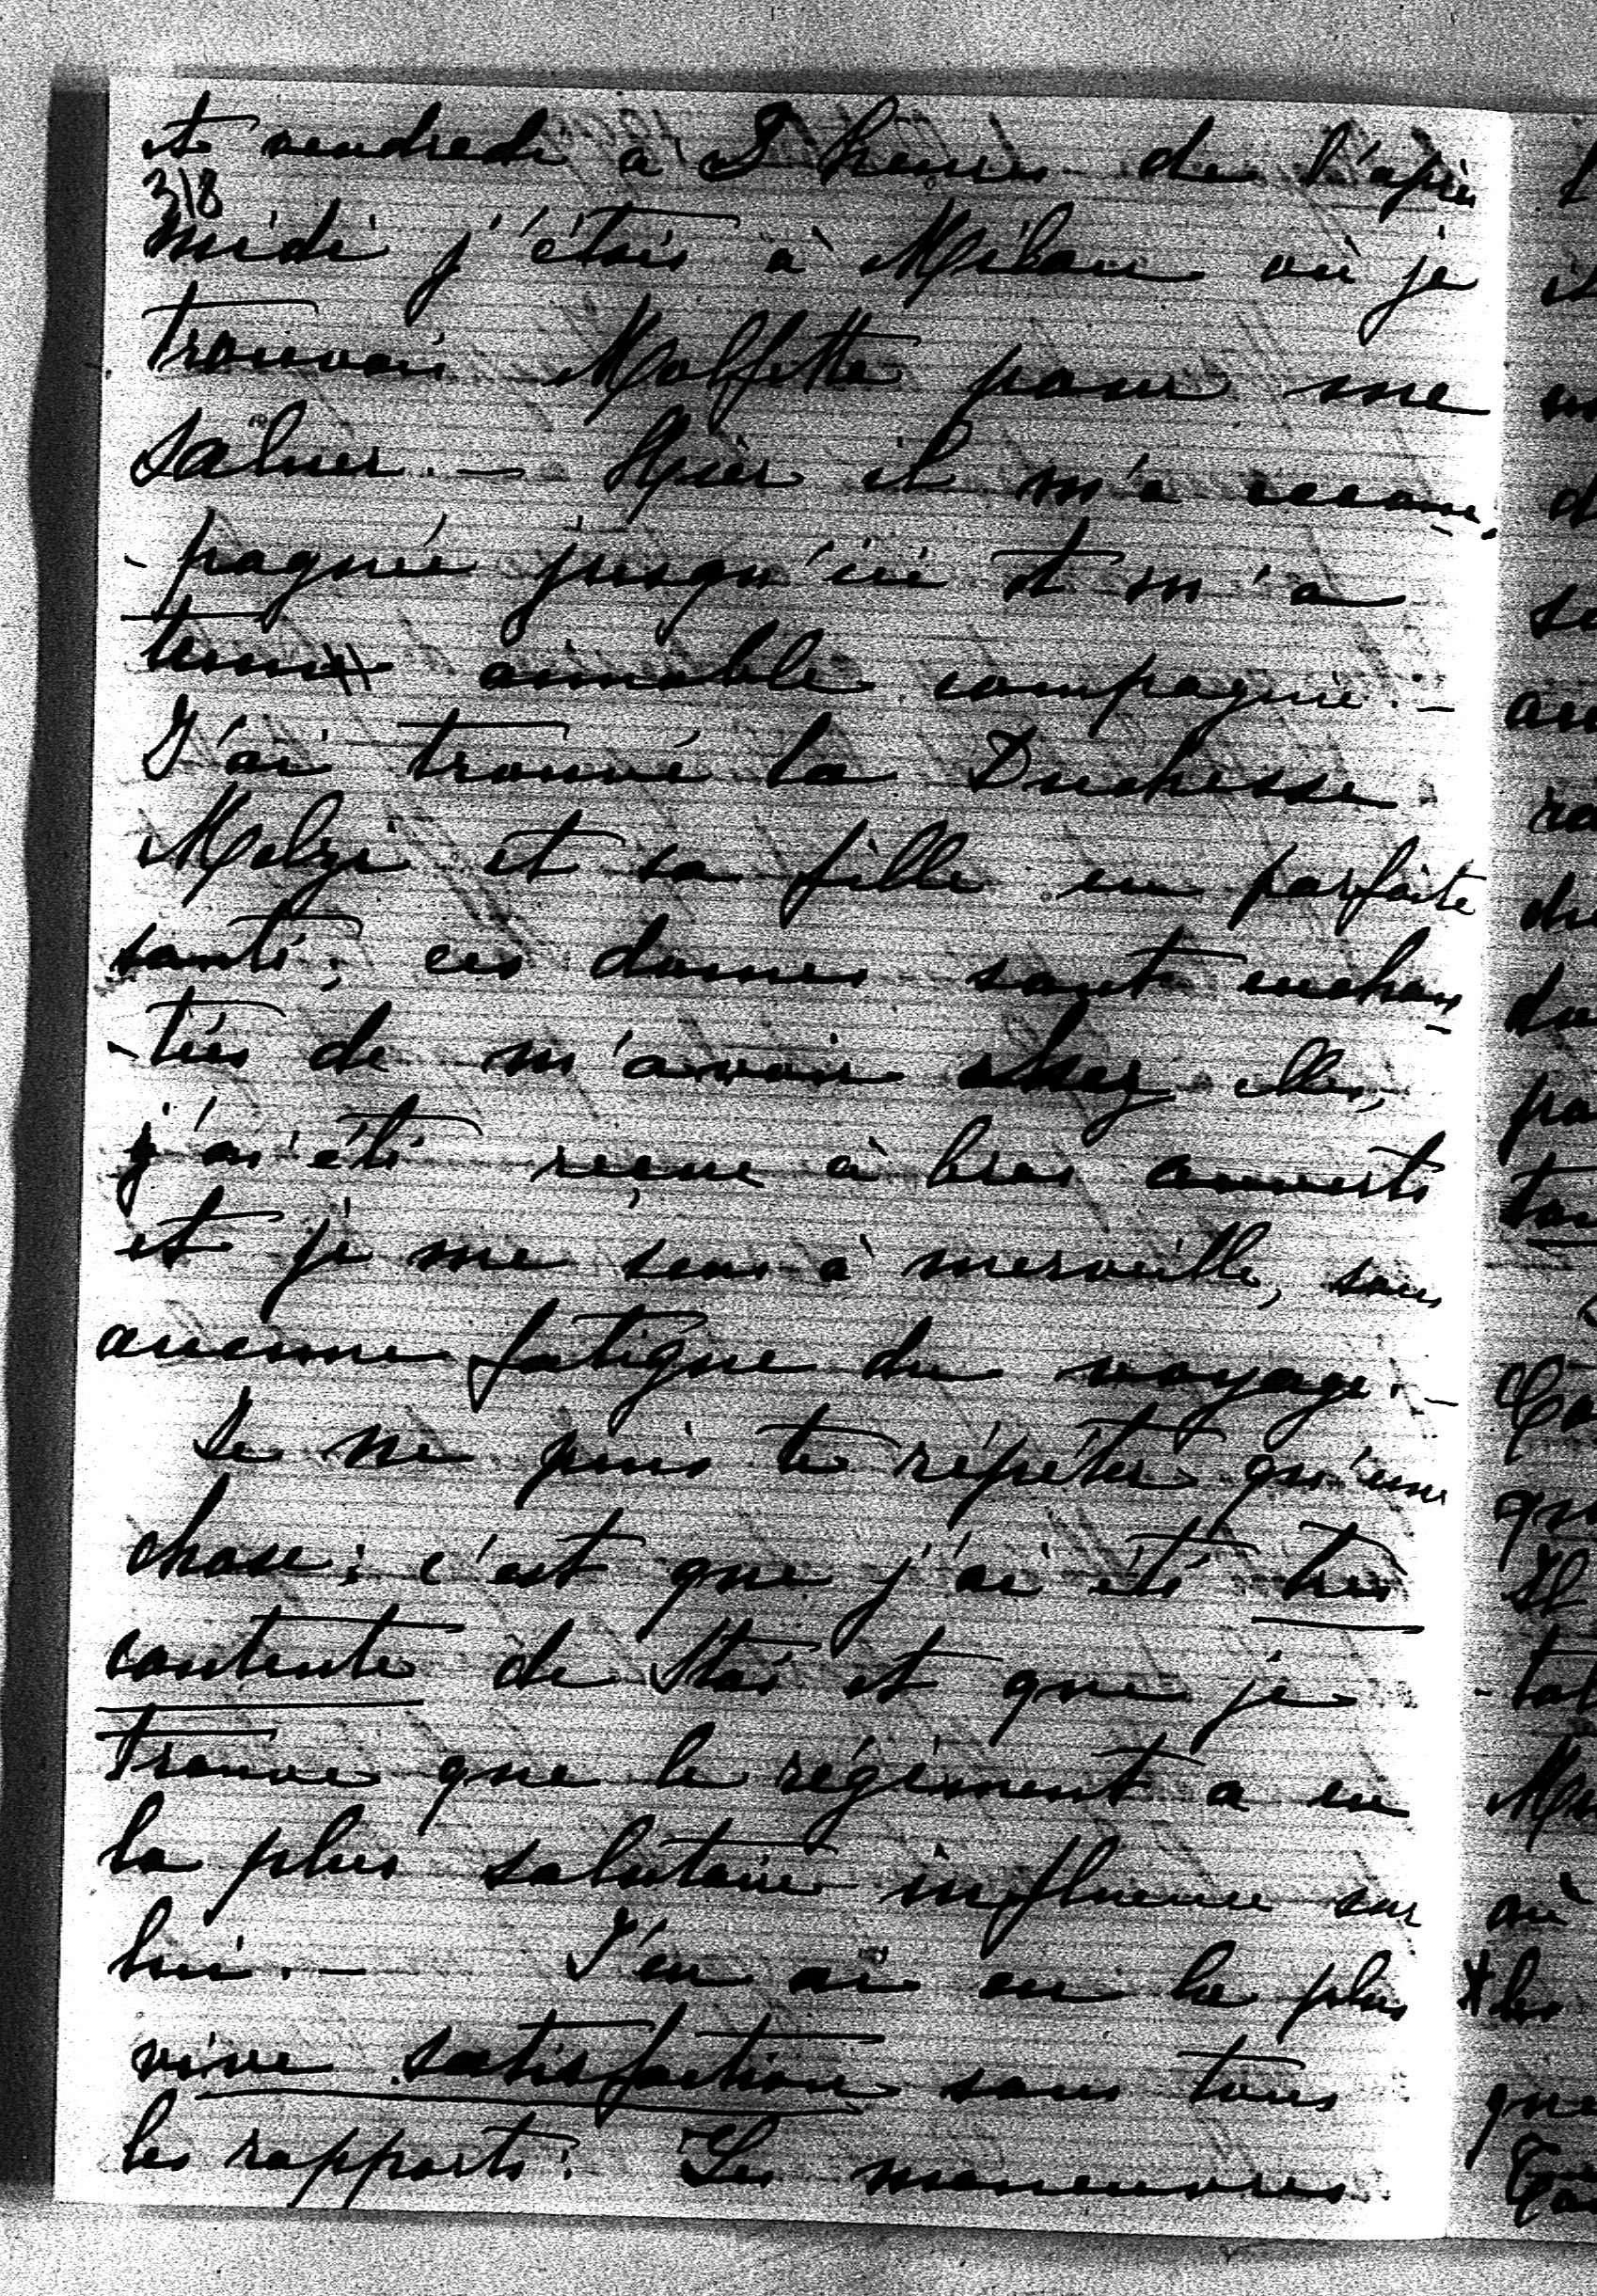 et vendredi à 5 heures de l'après
3/8
midi j'étais à Milan où je
trouvais Molfetta pour me
saluer. — Hier il m'a accom-
-pagnée jusqu'ici et m'a
tenu aimable compagnie. —
J'ai trouvé la Duchesse
Melzi et sa fille en parfaite
santé; ces dames sont enchan-
-tées de m'avoir chez elles,
j'ai été reçue à bras ouverts
et je me sens à merveille, sans
aucune fatigue du voyage. —
Je ne puis te répéter qu'une
chose: c'est que j'ai été très
contente de Stoï et que je
trouve que le régiment a eu
la plus salutaire influence sur
lui. — J'en ai eu la plus
vive satisfaction sous tous
les rapports. Les manœuvres